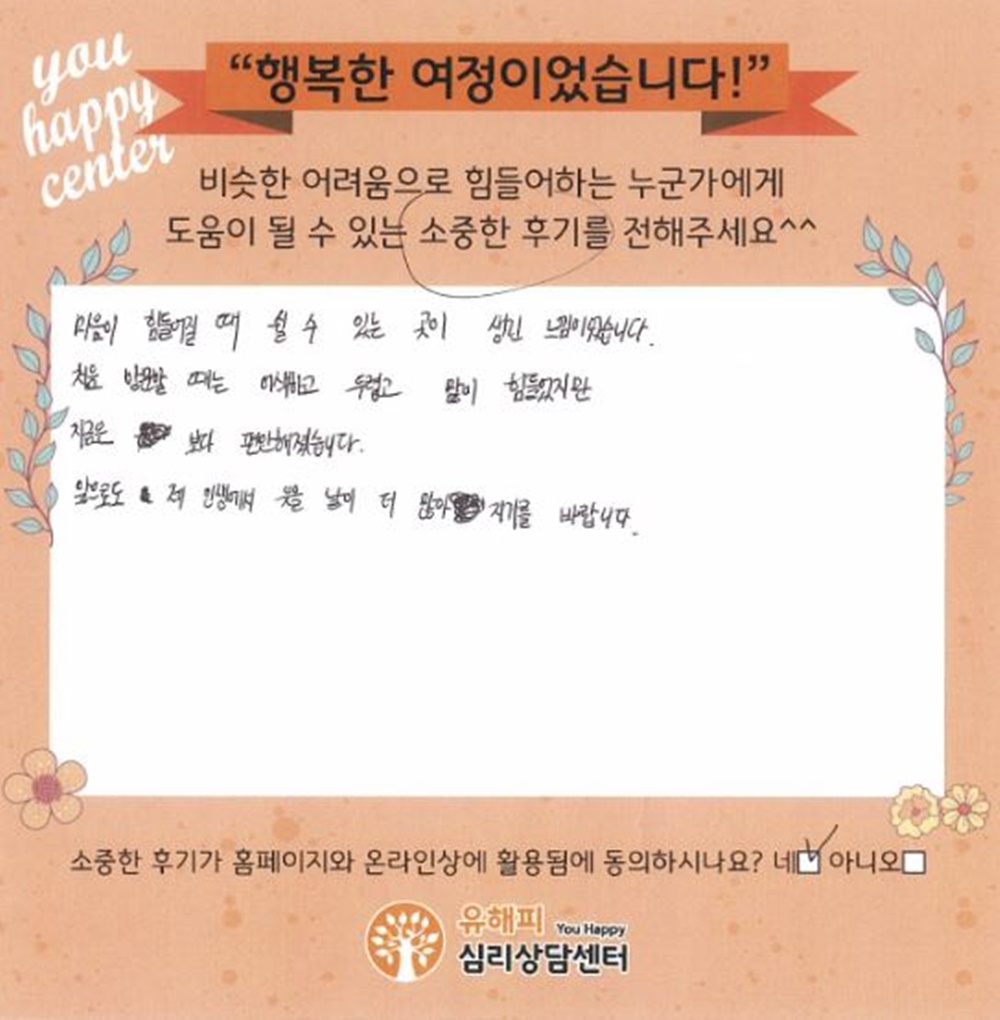 you
happy
center
“행복한 여정이었습니다!”
비슷한 어려움으로 힘들어하는 누군가에게
도움이 될 수 있는 소중한 후기를 전해주세요^^
마음이 힘들어질 때 쉴 수 있는 곳이 생긴 느낌이었습니다.
처음 방문할 때는 어색하고 두렵고 많이 힘들었지만
지금은 보다 편안해졌습니다.
앞으로도 제 인생에서 웃을 날이 더 많아 지기를 바랍니다.
소중한 후기가 홈페이지와 온라인상에 활용됨에 동의하시나요? 네 아니오
유해피 You Happy
심리상담센터